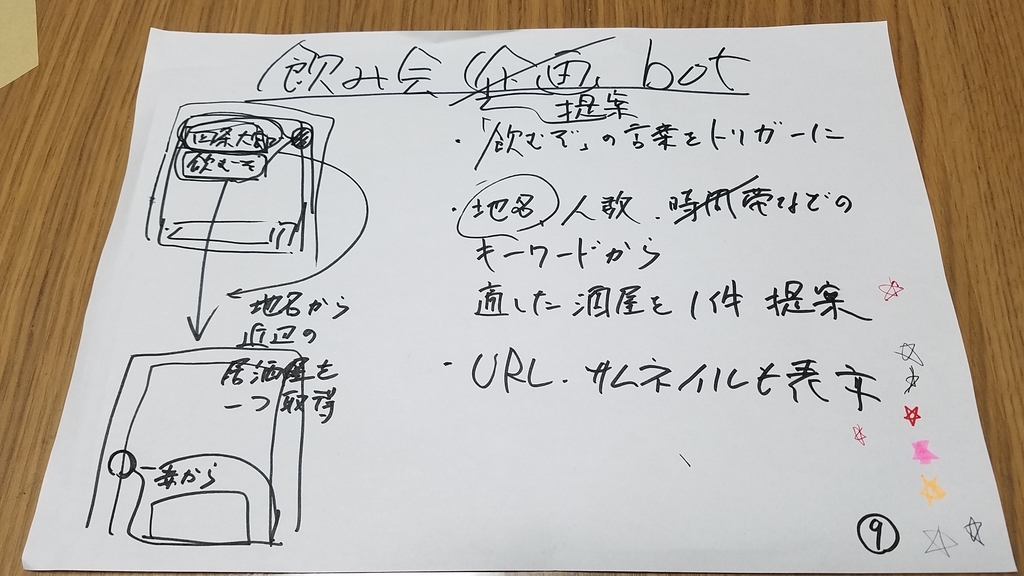 飲み会 企画 bot
提案
・「飲むぞ」の言葉をトリガーに
・地名 人数、時間帯などの
キーワードから
適した酒屋を1件 提案
・URL・サムネイルも表示
飲むぞ
地名から
近辺の
居酒屋を
一つ取得
から
9